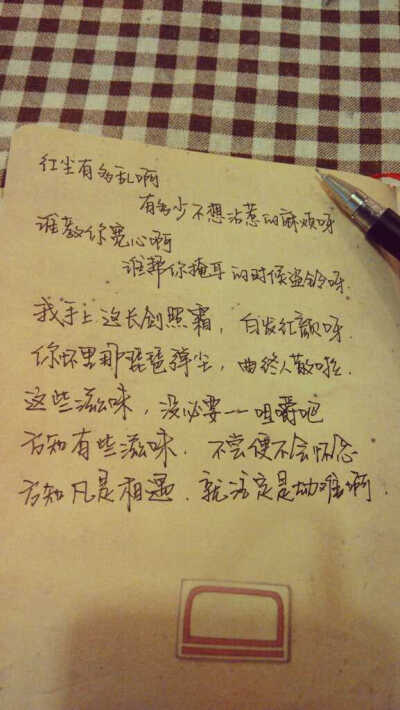 红尘有多乱啊
有多少不想沾惹的麻烦呀
谁教你宽心啊
谁帮你掩耳的时候盗铃呀.
我手上这长剑照霜，白发红颜呀.
你怀里那琵琶弹尘，曲终人散啦.
这些滋味，没必要一一咀嚼吧
方知有些滋味.不尝便不会怀念
方知凡是相遇.就注定是劫难啊.